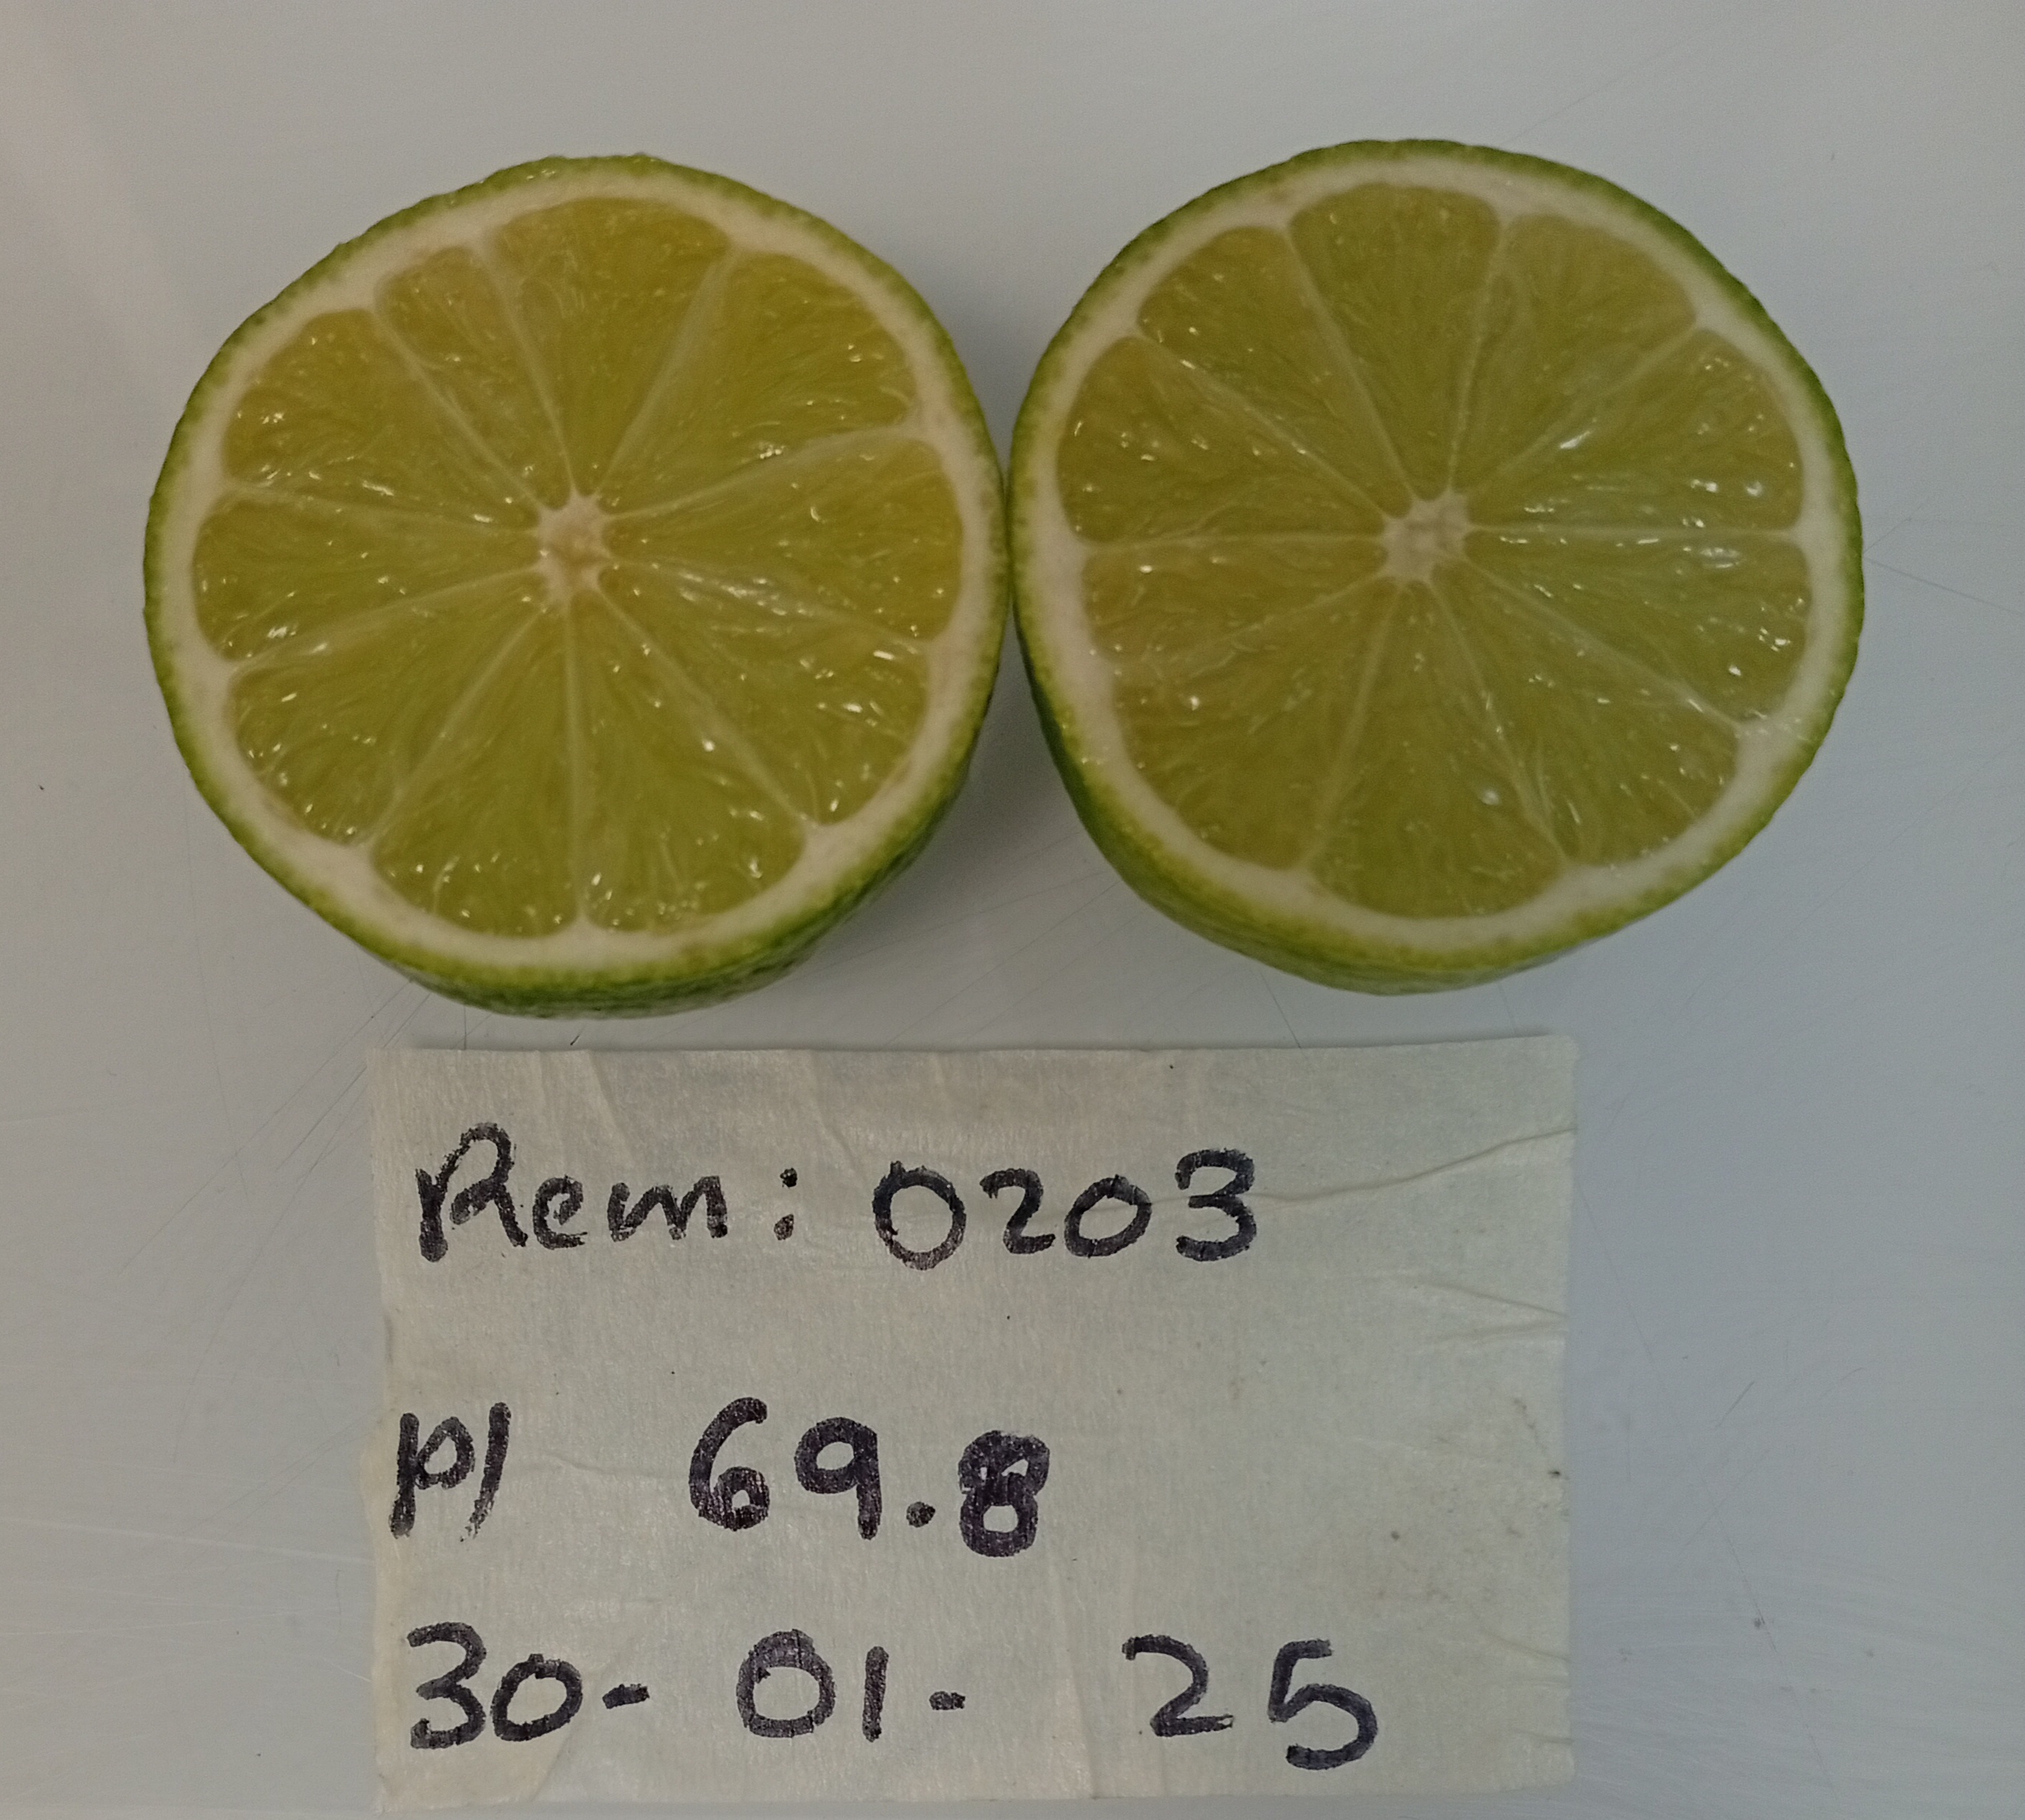 Rem: 0203
pl 69.8
30-01-25